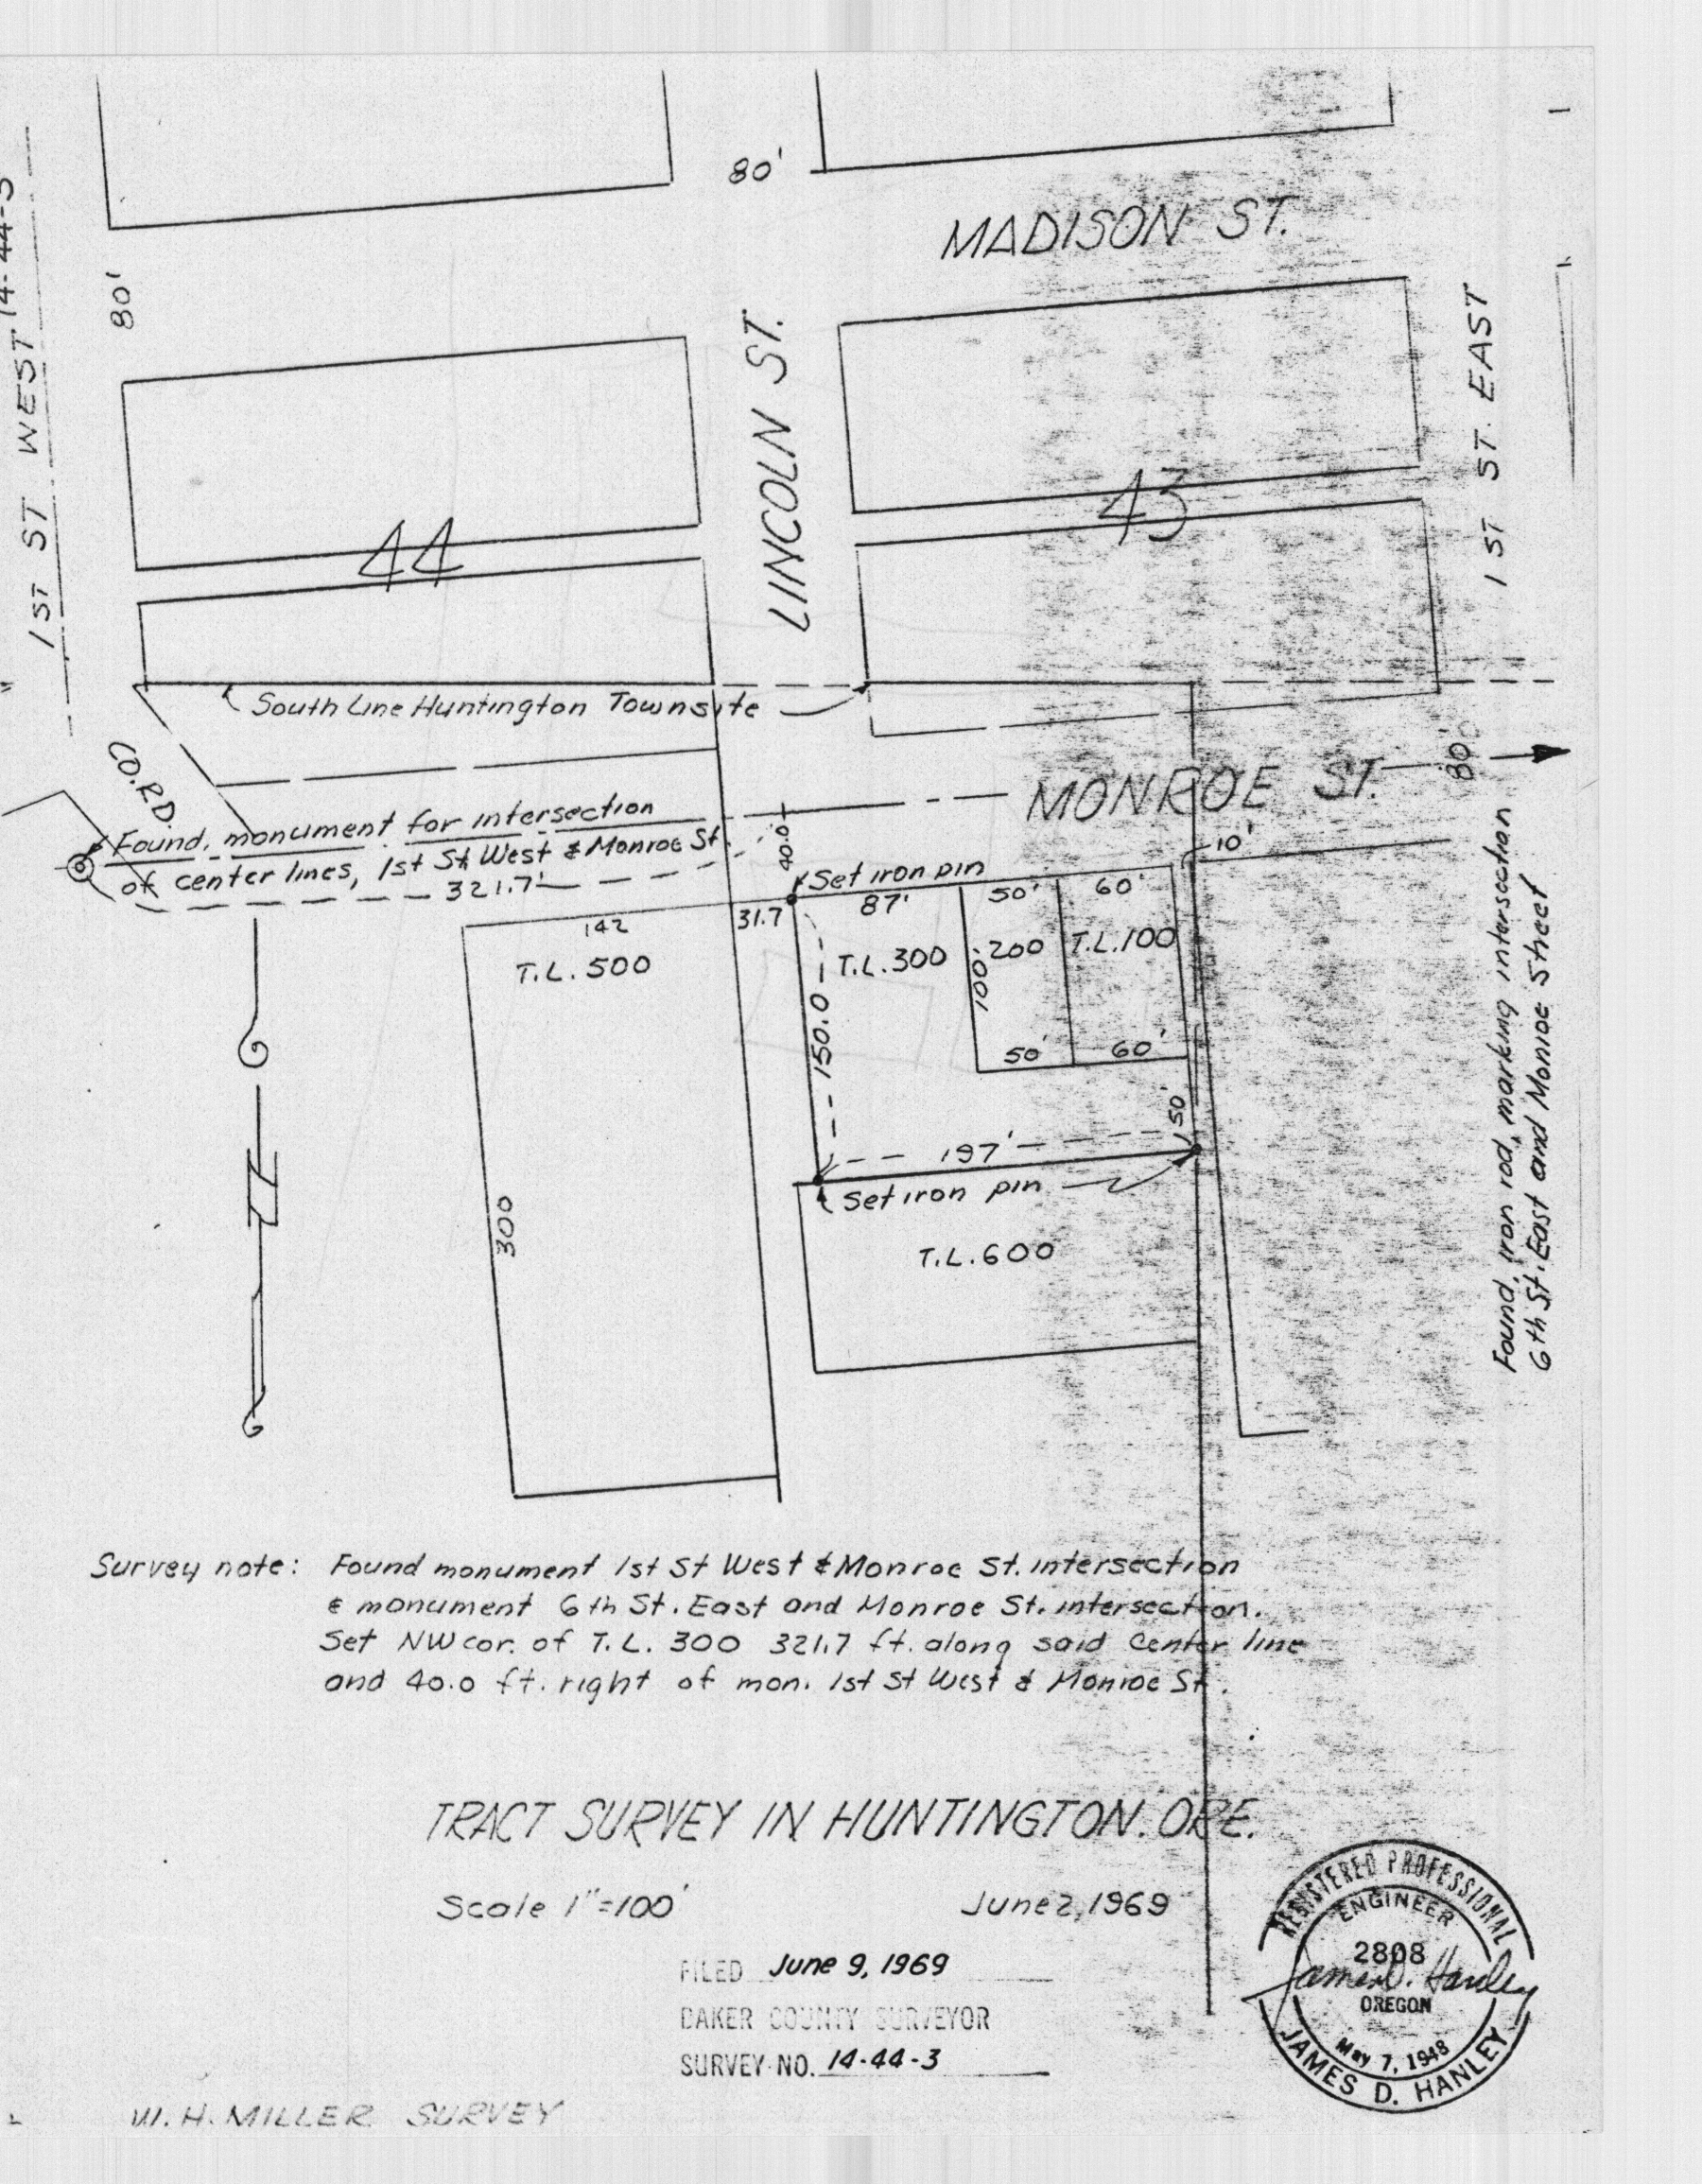 80'
MADISON ST.
80'
1ST ST WEST
14-44-3
LINCOLN ST.
1ST ST. EAST
43
44
South Line Huntington Townsite
CO. RD.
MONROE ST.
80'
Found, monument for intersection
of center lines, 1st St West & Monroe St.
321.7'
40.0
10'
Set iron pin
142
31.7
87'
50'
60'
T.L. 500
T.L. 300
200
T.L. 100
100'
150.0
50'
60'
50'
197'
Set iron pin
300
T.L. 600
Found, iron rod, marking intersection
6th St. East and Monroe Street
Survey note: Found monument 1st St West & Monroe St. intersection
& monument 6th St. East and Monroe St. intersection.
Set NW cor. of T.L. 300 321.7 ft. along said center line
and 40.0 ft. right of mon. 1st St West & Monroe St.
TRACT SURVEY IN HUNTINGTON. ORE.
Scale 1"=100'
June 2, 1969
FILED June 9, 1969
BAKER COUNTY SURVEYOR
SURVEY NO. 14-44-3
REGISTERED PROFESSIONAL
ENGINEER
2808
James D. Hanley
OREGON
May 7, 1948
JAMES D. HANLEY
W. H. MILLER SURVEY